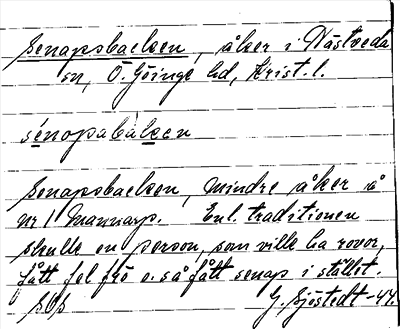 Senapsbacken, åker i Nästveda
sn, Ö. Göinge hd, Krist. l.
sénopabàlsen
Senapsbacken, mindre åker å
nr 1 Mannarp. Enl. traditionen
skulle en person, som ville ha rovor,
fått fel frö o. så fått senap i stället.
G. Sjöstedt -44.